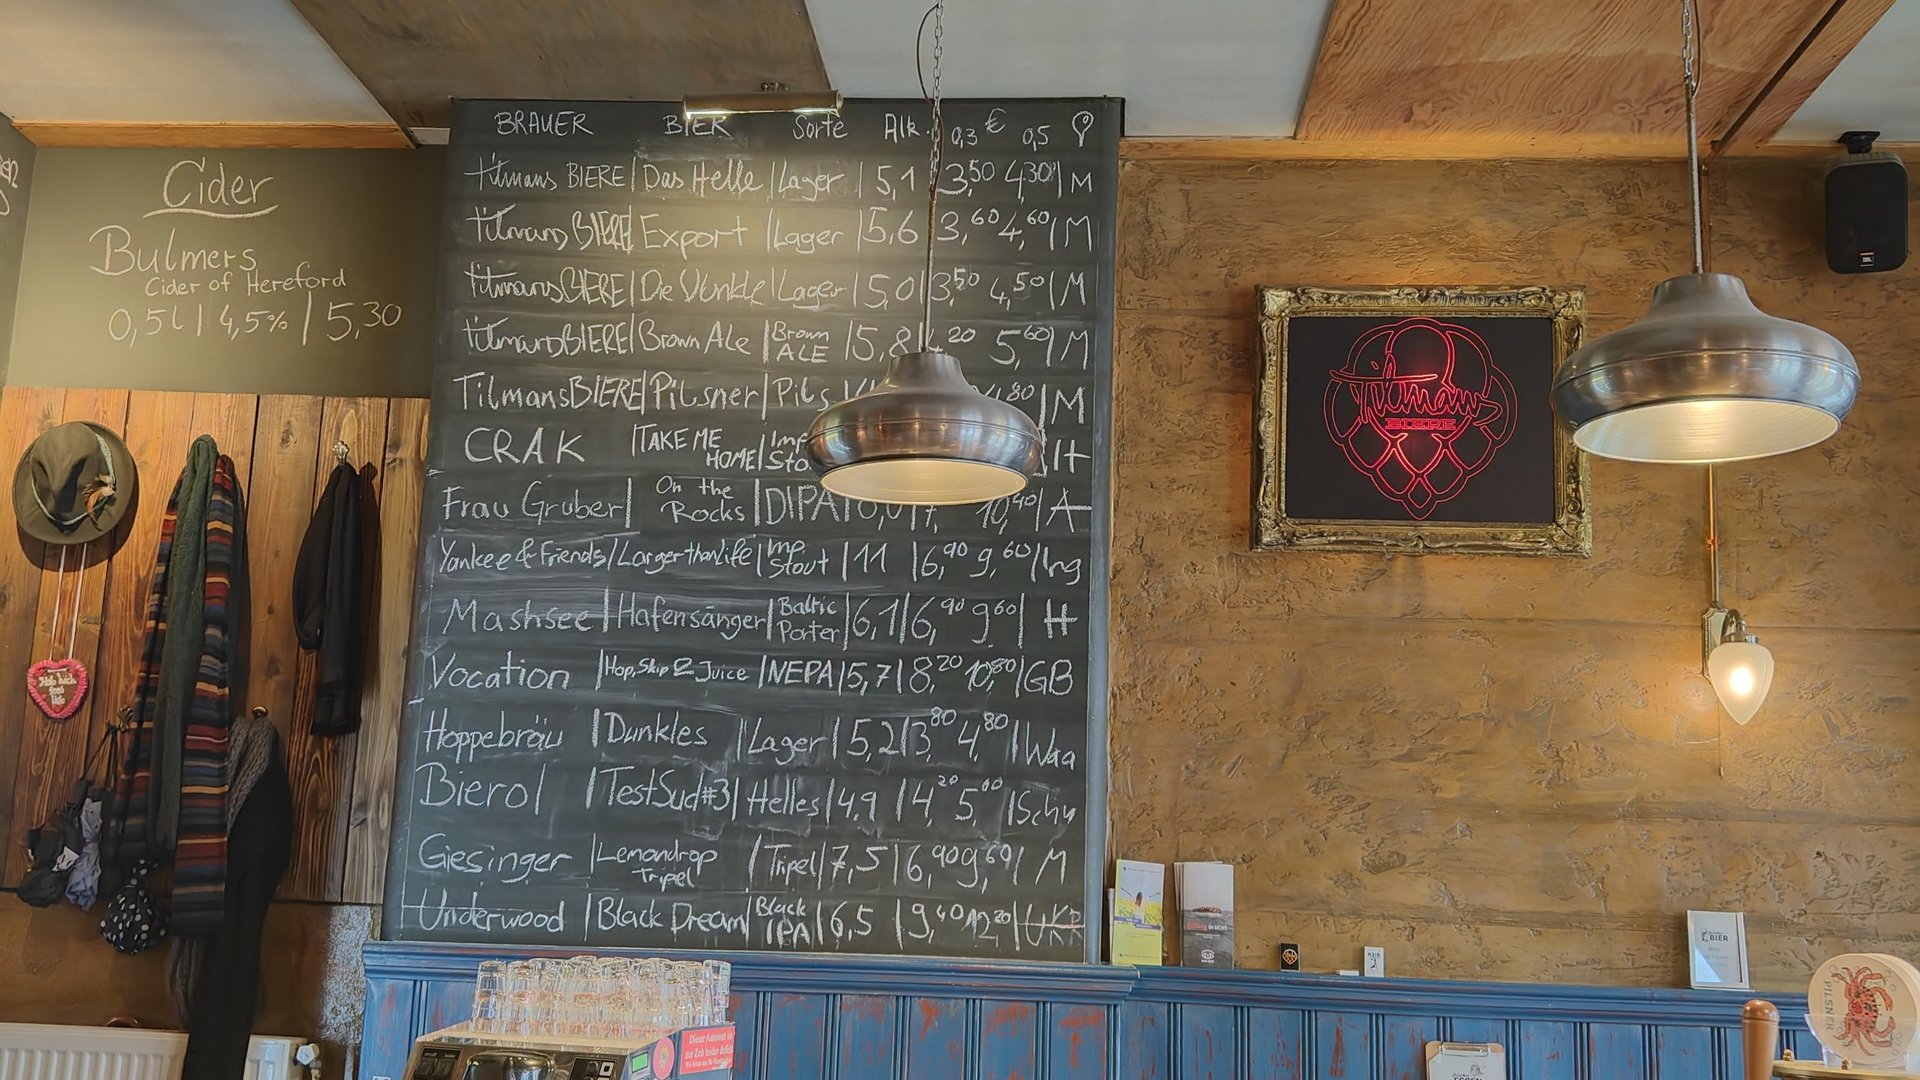 Cider
Bulmers
Cider of Hereford
0,5l | 4,5% | 5,30
BRAUER BIER Sorte Alk. 0,3 € 0,5
Tilmans BIERE | Das Helle | Lager | 5,1 | 3,50 4,30 | M
Tilmans BIERE | Export | Lager | 5,6 | 3,60 4,60 | M
Tilmans BIERE | Die Dunkle | Lager | 5,0 | 3,50 4,50 | M
Tilmans BIERE | Brown Ale | Brown ALE | 5,8 | 4,20 5,60 | M
Tilmans BIERE | Pilsner | Pils 4,80 | M
CRAK | TAKE ME HOME | Imp | It
Frau Gruber | On the Rocks | DIPA | 10,40 | A
Yankee & Friends | Larger than Life | Imp Stout | 11 | 6,90 9,60 | Ing
Mashsee | Hafensänger | Baltic Porter | 6,1 | 6,90 9,60 | H
Vocation | Hop, Skip & Juice | NEPA | 5,7 | 8,20 10,80 | GB
Hoppebräu | Dunkles | Lager | 5,2 | 3,80 4,80 | Waa
Bierol | TestSud #3 | Helles | 4,9 | 4,20 5,00 | Schw
Giesinger | Lemondrop Tripel | Tripel | 7,5 | 6,90 9,60 | M
Underwood | Black Dream | Black IPA | 6,5 | 9,40 12,20 | UKR
Tilmans
BIERE
JBL
Hab dich
ganz
lieb
BIER
PILSNER
Dieser Automat ist
zur Zeit leider defekt
ESSEN